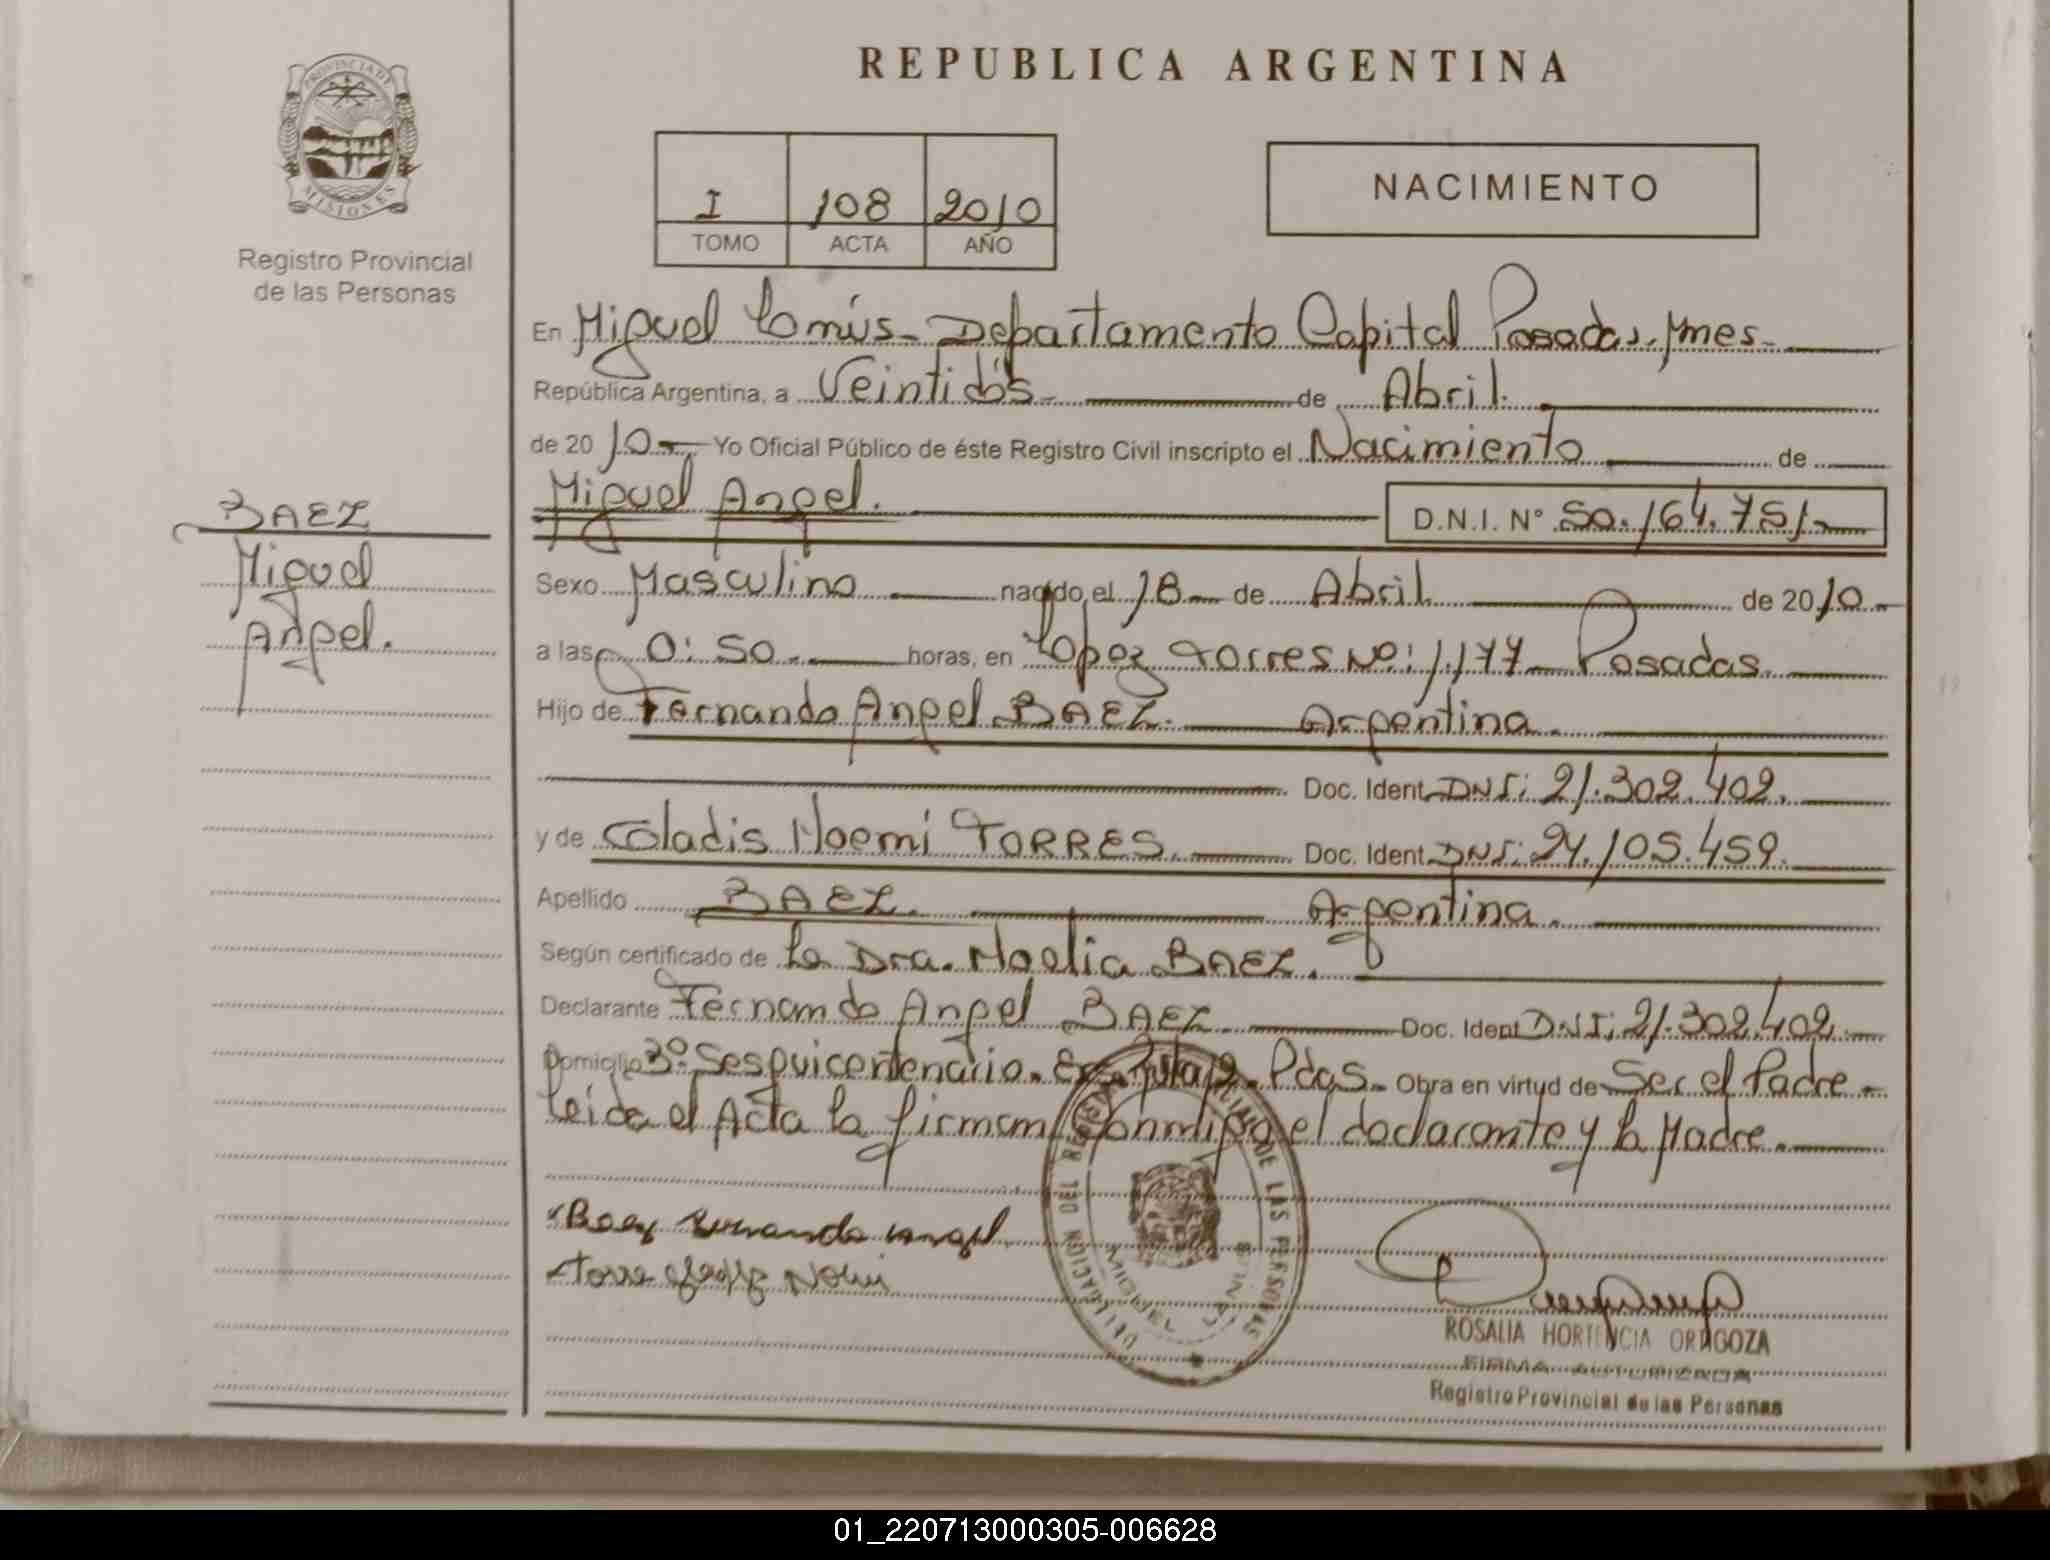 REPUBLICA ARGENTINA
PROVINCIA DE
MISIONES
Registro Provincial
de las Personas
I 108 2010
TOMO ACTA AÑO
NACIMIENTO
En Miguel Lanús - Departamento Capital Posadas, Mnes.
República Argentina, a Veintidós de Abril.
de 2010 Yo Oficial Público de éste Registro Civil inscripto el Nacimiento de
Miguel Angel. D.N.I. N° 50.164.751
BAEZ
Miguel
Angel.
Sexo Masculino nacido el 18 de Abril de 2010
a las 0:50 horas, en López Torres No: 1.177 Posadas.
Hijo de Fernando Angel BAEZ. Argentina.
Doc. Ident DNI: 21.302.402.
y de Gladis Noemí TORRES. Doc. Ident DNI: 24.105.459.
Apellido BAEZ. Argentina.
Según certificado de La Dra. Noelia BAEZ.
Declarante Fernando Angel BAEZ Doc. Ident DNI: 21.302.402
Domicilio 3° Sesquicentenario. Pdas. Obra en virtud de Ser el Padre
Leida el Acta la firman Conmigo el declarante y la Madre.
Baez Fernando Angel
Torre Noemi
DELEGACION DEL REGISTRO DE LAS PERSONAS
MIGUEL
ROSALIA HORTENCIA ORAGOZA
FIRMA AUTORIZADA
Registro Provincial de las Personas
01_220713000305-006628